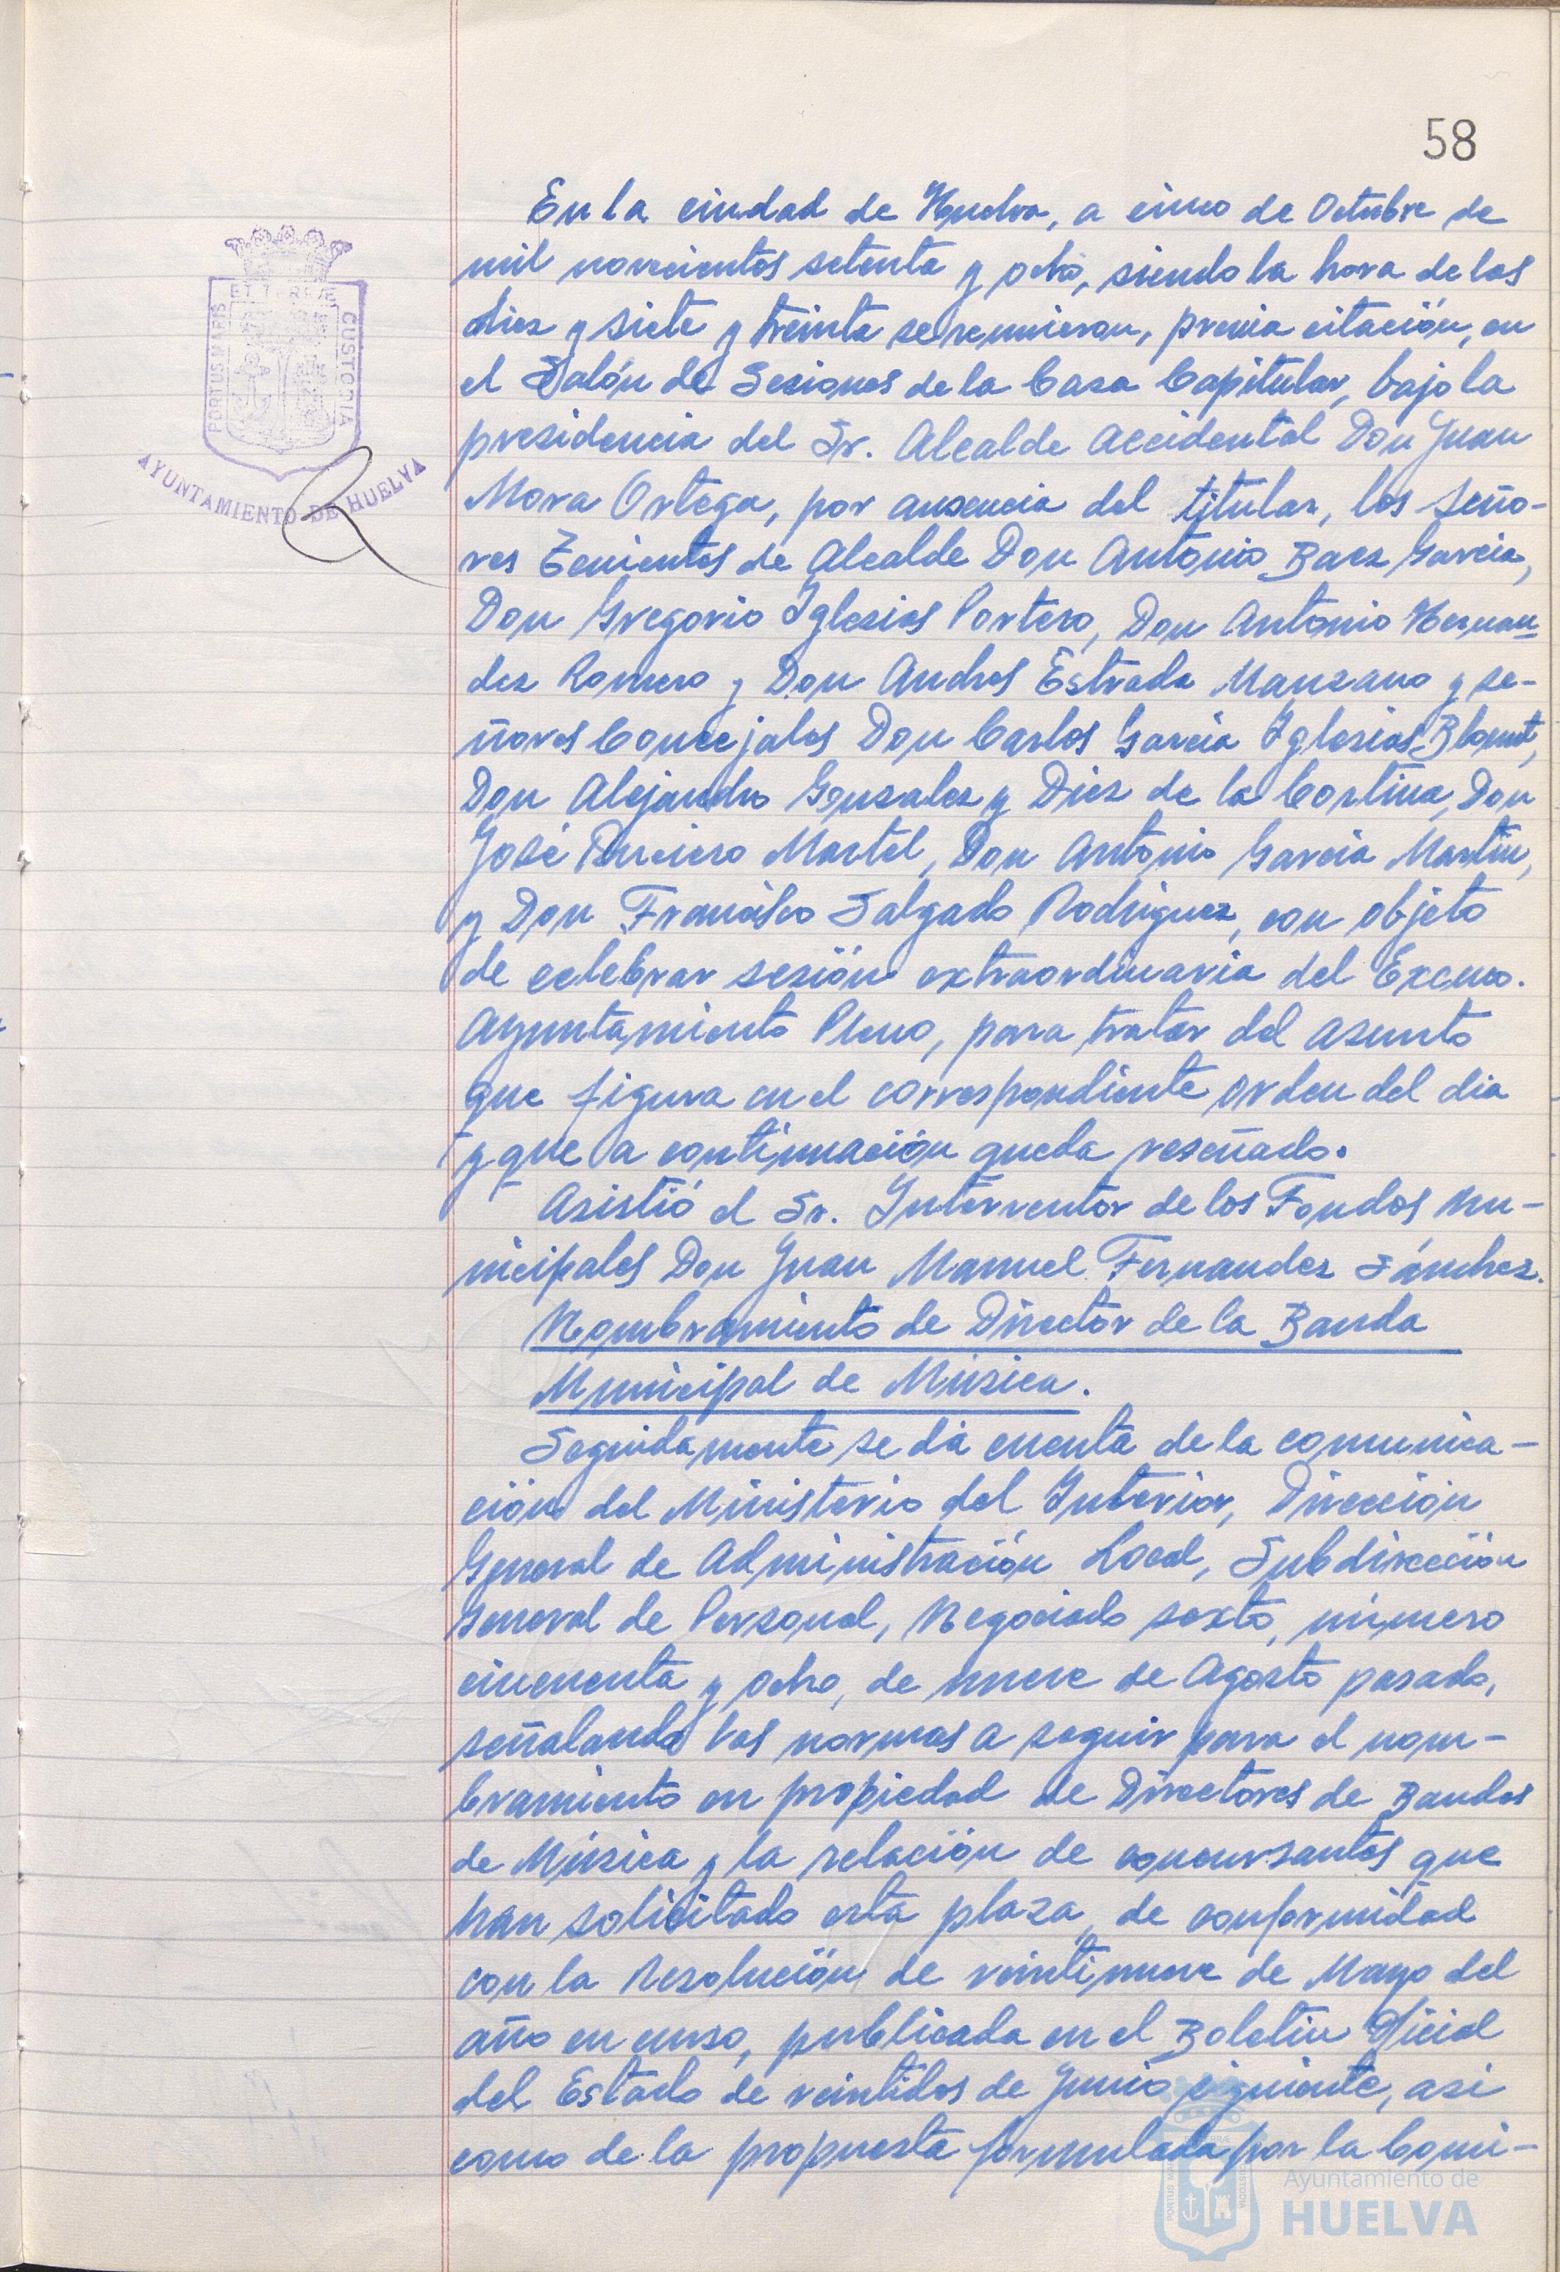 58
En la ciudad de Huelva, a cinco de Octubre de
mil novecientos setenta y ocho, siendo la hora de las
diez y siete y treinta se reunieron, previa citación, en
el Salón de Sesiones de la Casa Capitular, bajo la
presidencia del Sr. Alcalde Accidental Don Juan
Mora Ortega, por ausencia del titular, los Seño-
res Tenientes de Alcalde Don Antonio Baez Garcia,
Don Gregorio Iglesias Portero, Don Antonio Hernan
dez Romero y Don Andres Estrada Manzano y se-
ñores Concejales Don Carlos Garcia Iglesias Blount,
Don Alejandro Gonzalez y Diez de la Cortina, Don
José Martel, Don Antonio Garcia Martin,
y Don Francisco Salgado Rodriguez, con objeto
de celebrar sesión extraordinaria del Excmo.
Ayuntamiento Pleno, para tratar del asunto
que figura en el correspondiente orden del dia
y que a continuación queda reseñado.
Asistió el Sr. Interventor de los Fondos Mu-
nicipales Don Juan Manuel Fernandez Sánchez.
Nombramiento de Director de la Banda
Municipal de Música.
Seguidamente se dá cuenta de la comunica-
ción del Ministerio del Interior, Dirección
General de Administración Local, Subdirección
General de Personal, Negociado sexto, número
cincuenta y ocho, de nueve de Agosto pasado,
señalando las normas a seguir para el nom-
bramiento en propiedad de Directores de Bandas
de Música y la relación de concursantes que
han solicitado esta plaza, de conformidad
con la Resolución de veintinueve de Mayo del
año en curso, publicada en el Boletin Oficial
del Estado de veintidos de Junio siguiente, asi
como de la propuesta formulada por la Comi-
PORTUS MARIS ET TERRAE CUSTODIA
AYUNTAMIENTO DE HUELVA
Ayuntamiento de
HUELVA